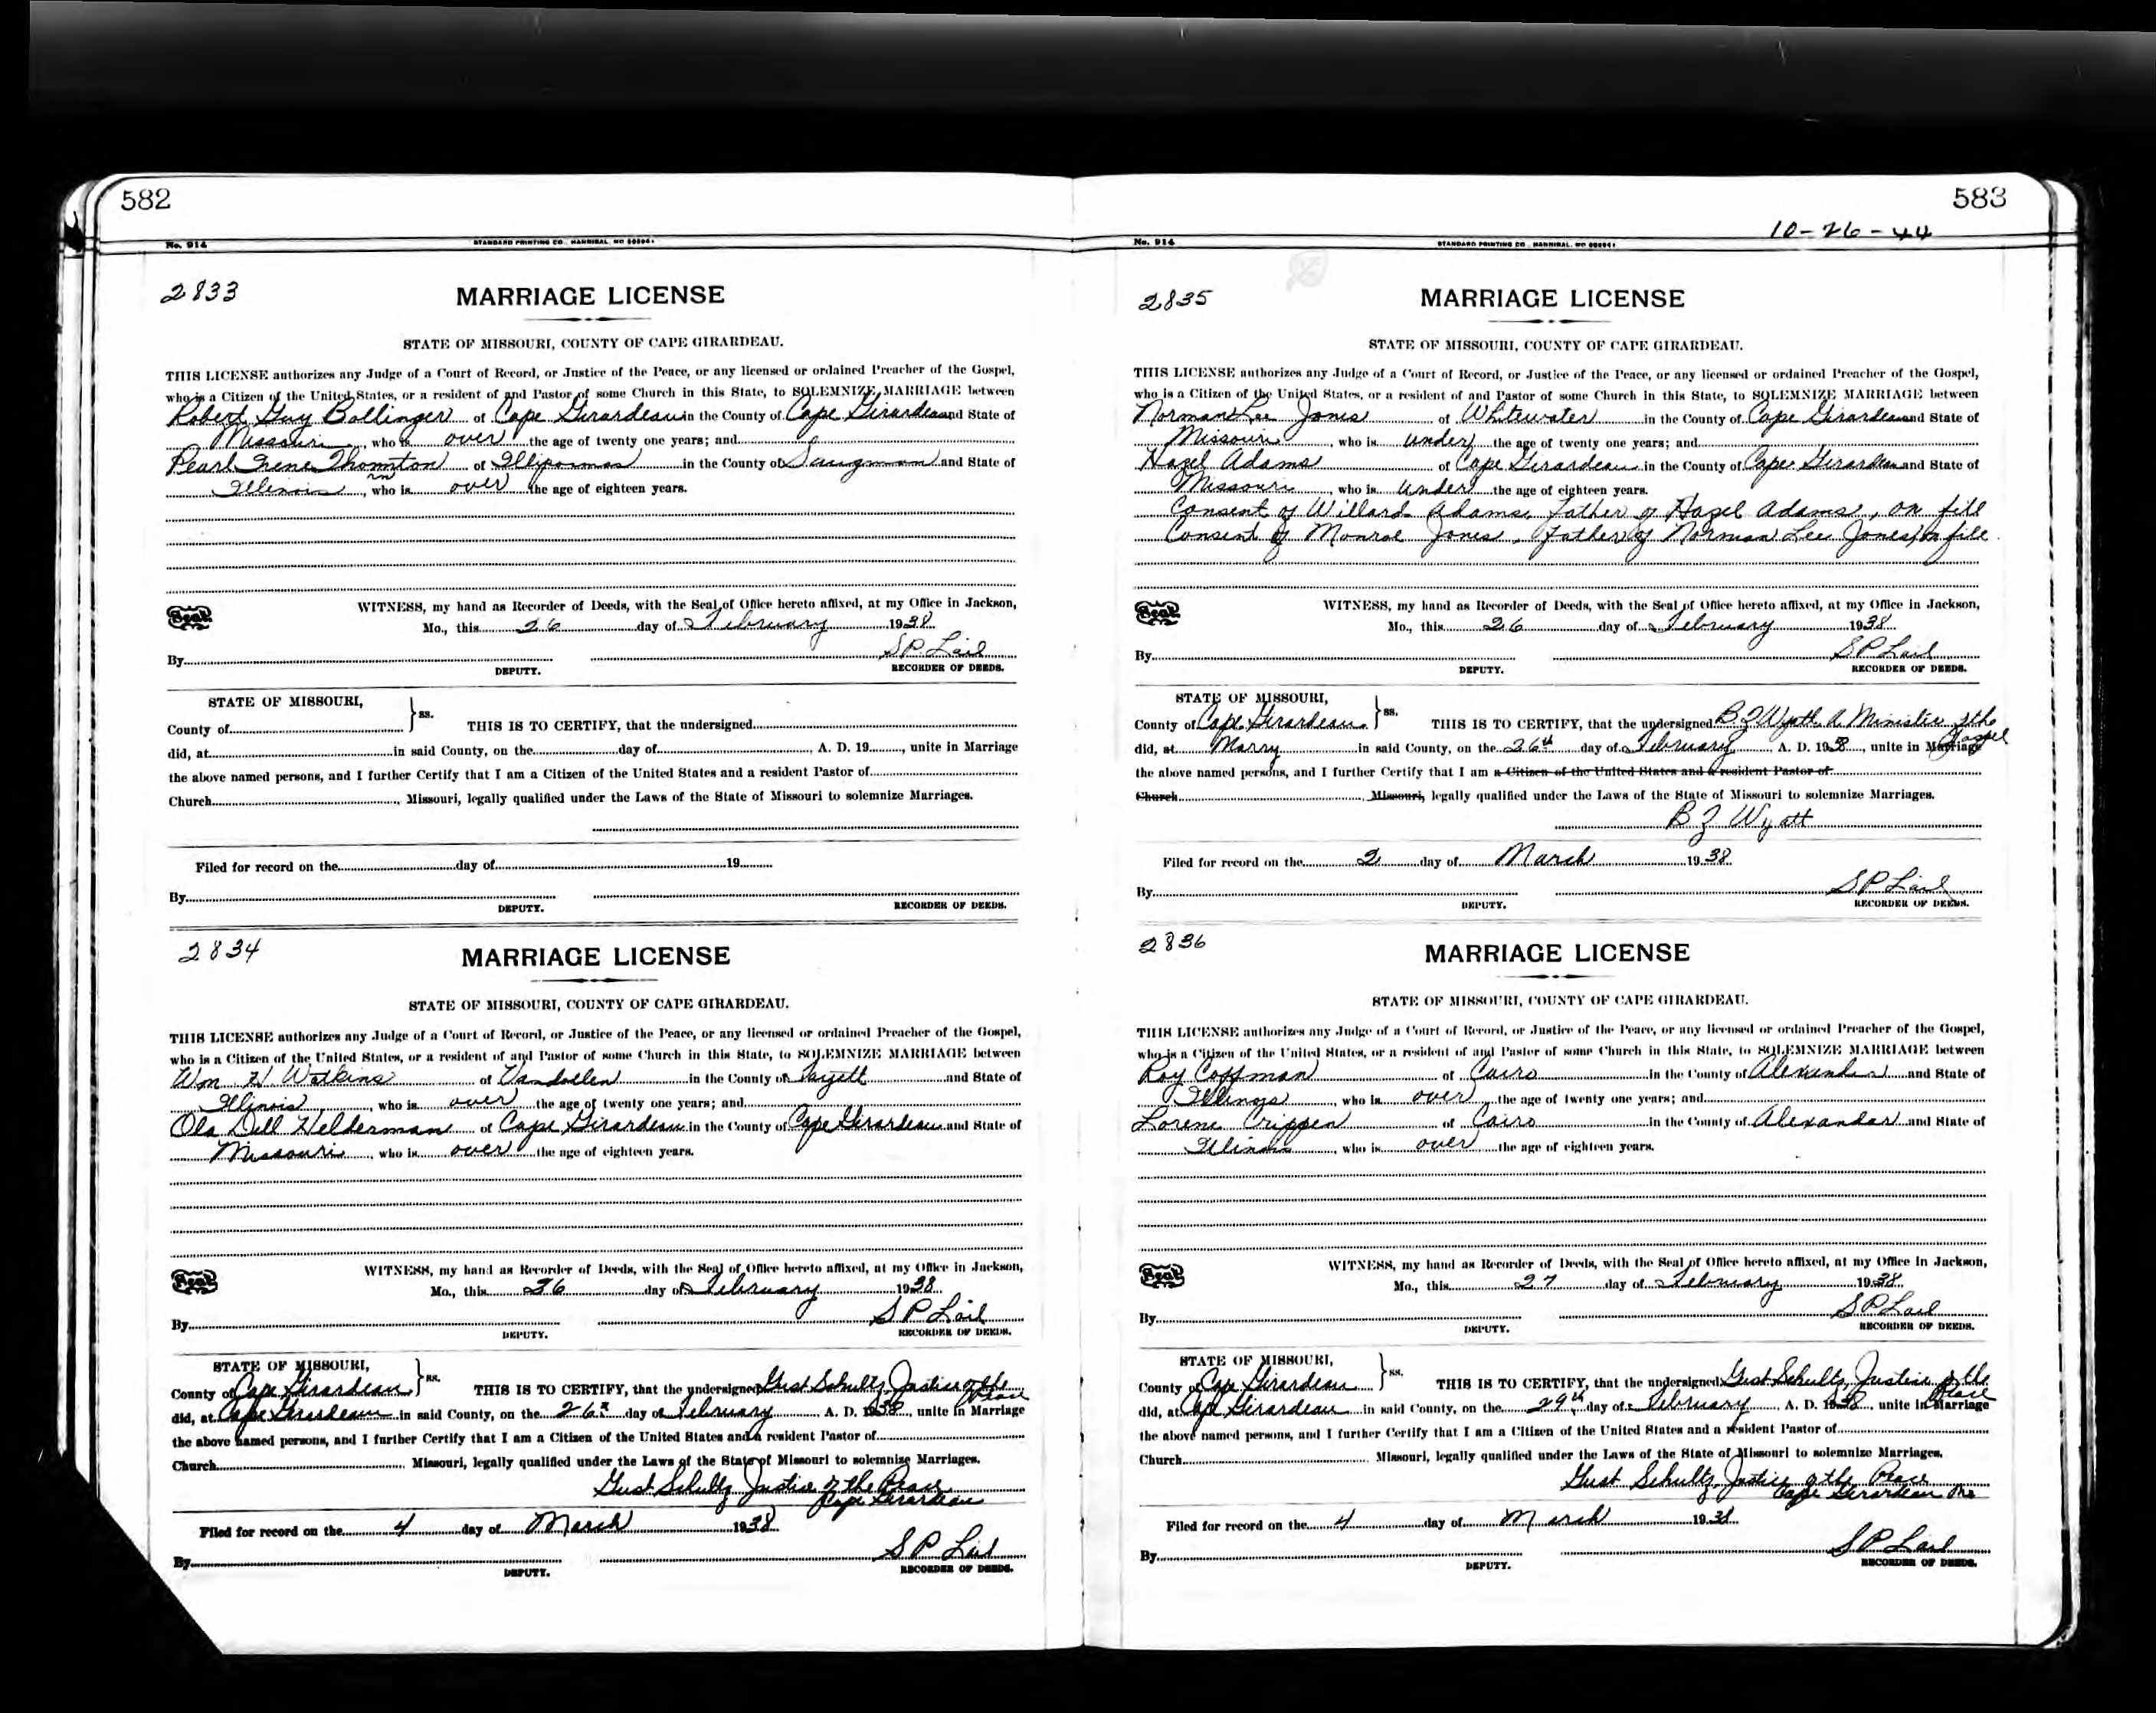 582
No. 914 STANDARD PRINTING CO., HANNIBAL, MO
2833
MARRIAGE LICENSE
STATE OF MISSOURI, COUNTY OF CAPE GIRARDEAU.
THIS LICENSE authorizes any Judge of a Court of Record, or Justice of the Peace, or any licensed or ordained Preacher of the Gospel,
who is a Citizen of the United States, or a resident of and Pastor of some Church in this State, to SOLEMNIZE MARRIAGE between
Robert Guy Bollinger of Cape Girardeau in the County of Cape Girardeau and State of
Missouri, who is over the age of twenty one years; and
Pearl Irene Thornton of in the County of Sangmon and State of
Illinois, who is over the age of eighteen years.
Seal
WITNESS, my hand as Recorder of Deeds, with the Seal of Office hereto affixed, at my Office in Jackson,
Mo., this 26 day of February 1938
By S P Lail
DEPUTY. RECORDER OF DEEDS.
STATE OF MISSOURI,
County of } ss. THIS IS TO CERTIFY, that the undersigned
did, at in said County, on the day of A. D. 19 , unite in Marriage
the above named persons, and I further Certify that I am a Citizen of the United States and a resident Pastor of
Church , Missouri, legally qualified under the Laws of the State of Missouri to solemnize Marriages.
Filed for record on the day of 19
By
DEPUTY. RECORDER OF DEEDS.
2834
MARRIAGE LICENSE
STATE OF MISSOURI, COUNTY OF CAPE GIRARDEAU.
THIS LICENSE authorizes any Judge of a Court of Record, or Justice of the Peace, or any licensed or ordained Preacher of the Gospel,
who is a Citizen of the United States, or a resident of and Pastor of some Church in this State, to SOLEMNIZE MARRIAGE between
Wm H Watkins of Vandallen in the County of Fayett and State of
Illinois, who is over the age of twenty one years; and
Ola Dell Helderman of Cape Girardeau in the County of Cape Girardeau and State of
Missouri, who is over the age of eighteen years.
Seal
WITNESS, my hand as Recorder of Deeds, with the Seal of Office hereto affixed, at my Office in Jackson,
Mo., this 26 day of February 1938
By S P Lail
DEPUTY. RECORDER OF DEEDS.
STATE OF MISSOURI,
County of Cape Girardeau } ss. THIS IS TO CERTIFY, that the undersigned Gust Schultz, Justice of the Peace
did, at Cape Girardeau in said County, on the 26th day of February A. D. 1938, unite in Marriage
the above named persons, and I further Certify that I am a Citizen of the United States and a resident Pastor of
Church Missouri, legally qualified under the Laws of the State of Missouri to solemnize Marriages.
Gust Schultz Justice of the Peace
Cape Girardeau
Filed for record on the 4 day of March 1938
By S P Lail
DEPUTY. RECORDER OF DEEDS.
583
10-26-44
No. 914 STANDARD PRINTING CO., HANNIBAL, MO
2835
MARRIAGE LICENSE
STATE OF MISSOURI, COUNTY OF CAPE GIRARDEAU.
THIS LICENSE authorizes any Judge of a Court of Record, or Justice of the Peace, or any licensed or ordained Preacher of the Gospel,
who is a Citizen of the United States, or a resident of and Pastor of some Church in this State, to SOLEMNIZE MARRIAGE between
Norman Lee Jones of Whitewater in the County of Cape Girardeau and State of
Missouri, who is under the age of twenty one years; and
Hazel Adams of Cape Girardeau in the County of Cape Girardeau and State of
Missouri, who is under the age of eighteen years.
Consent of Willard Adams, Father of Hazel Adams, on file
Consent of Monroe Jones, Father of Norman Lee Jones, on file
Seal
WITNESS, my hand as Recorder of Deeds, with the Seal of Office hereto affixed, at my Office in Jackson,
Mo., this 26 day of February 1938
By S P Lail
DEPUTY. RECORDER OF DEEDS.
STATE OF MISSOURI,
County of Cape Girardeau } ss. THIS IS TO CERTIFY, that the undersigned B Z Wyatt A Minister of the Gospel
did, at Marry in said County, on the 26th day of February A. D. 1938, unite in Marriage
the above named persons, and I further Certify that I am a Citizen of the United States and a resident Pastor of
Church Missouri, legally qualified under the Laws of the State of Missouri to solemnize Marriages.
B Z Wyatt
Filed for record on the 2 day of March 1938
By S P Lail
DEPUTY. RECORDER OF DEEDS.
2836
MARRIAGE LICENSE
STATE OF MISSOURI, COUNTY OF CAPE GIRARDEAU.
THIS LICENSE authorizes any Judge of a Court of Record, or Justice of the Peace, or any licensed or ordained Preacher of the Gospel,
who is a Citizen of the United States, or a resident of and Pastor of some Church in this State, to SOLEMNIZE MARRIAGE between
Roy Coffman of Cairo in the County of Alexander and State of
Illinois, who is over the age of twenty one years; and
Lorene Crippen of Cairo in the County of Alexandar and State of
Illinois, who is over the age of eighteen years.
Seal
WITNESS, my hand as Recorder of Deeds, with the Seal of Office hereto affixed, at my Office in Jackson,
Mo., this 27 day of February 1938
By S P Lail
DEPUTY. RECORDER OF DEEDS.
STATE OF MISSOURI,
County of Cape Girardeau } ss. THIS IS TO CERTIFY, that the undersigned Gust Schultz, Justice of the Peace
did, at Cape Girardeau in said County, on the 29th day of February A. D. 1938, unite in Marriage
the above named persons, and I further Certify that I am a Citizen of the United States and a resident Pastor of
Church Missouri, legally qualified under the Laws of the State of Missouri to solemnize Marriages.
Gust Schultz, Justice of the Peace
Cape Girardeau Mo
Filed for record on the 4 day of March 1938
By S P Lail
DEPUTY. RECORDER OF DEEDS.